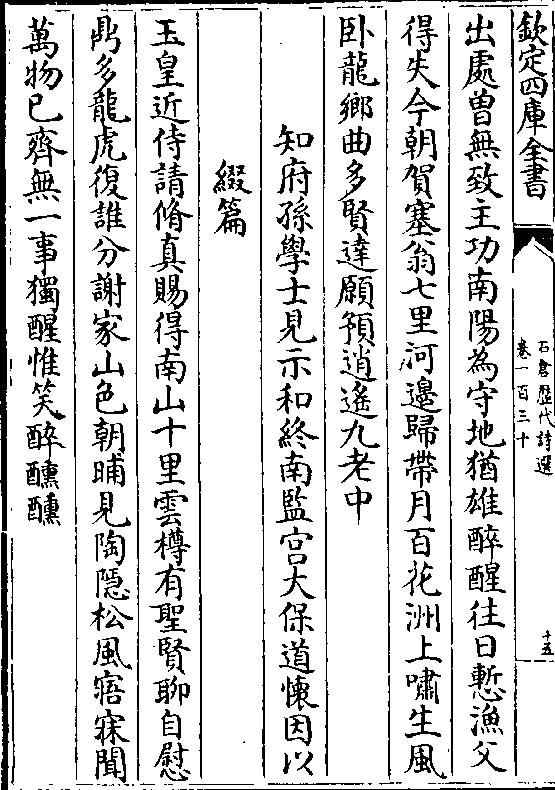 欽定四庫全書
石倉歷代詩選
卷一百三十
十五
出處曽無致主功南陽為守地猶雄醉醒往日慙漁父
得失今朝賀塞翁七里河邉歸帶月百花洲上嘯生風
卧龍鄉曲多賢達願預逍遙九老中
知府孫學士見示和終南監宫大保道懐因以
綴篇
玉皇近侍請脩真賜得南山十里雲樽有聖賢聊自慰
鼎多龍虎復誰分謝家山色朝晡見陶隠松風寤寐聞
萬物已齊無一事獨醒惟笑醉醺醺